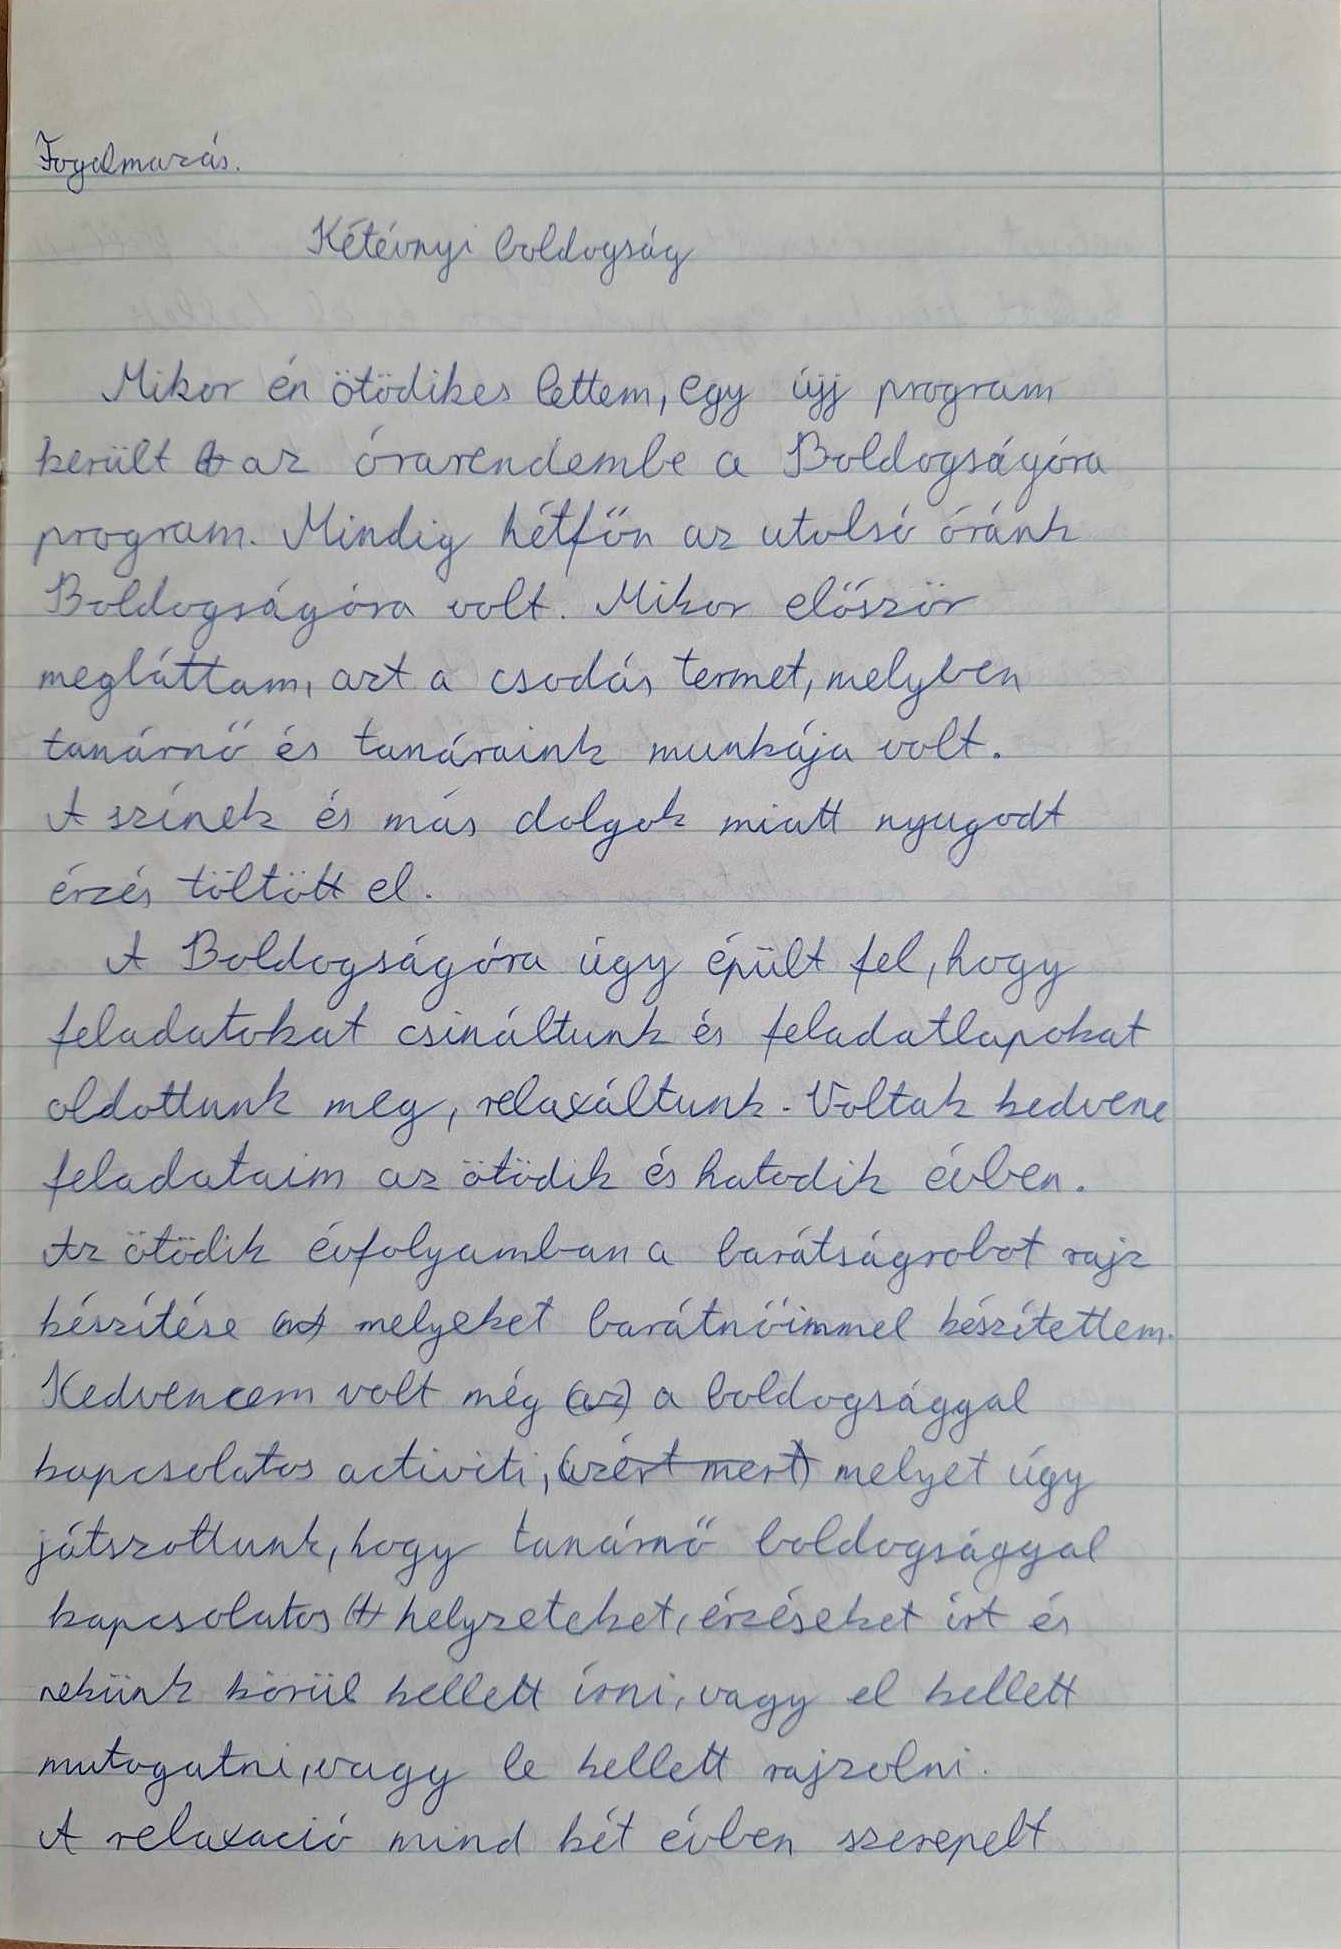 Fogalmazás.
Kétévnyi boldogság
Mikor én ötödikes lettem, egy újj program
került az órarendembe a Boldogságóra
program. Mindig hétfőn az utolsó óránk
Boldogságóra volt. Mikor először
megláttam, azt a csodás termet, melyben
tanárnő és tanáraink munkája volt.
A színek és más dolgok miatt nyugodt
érzés töltött el.
A Boldogságóra úgy épült fel, hogy
feladatokat csináltunk és feladatlapokat
oldottunk meg, relaxáltunk. Voltak kedvenc
feladataim az ötödik és hatodik évben.
Az ötödik évfolyamban a barátságrobot rajz
készítése melyeket barátnőimmel készítettem.
Kedvencem volt még (az) a boldogsággal
kapcsolatos activiti, (azért mert) melyet úgy
játszottunk, hogy tanárnő boldogsággal
kapcsolatos helyzeteket, érzéseket írt és
nekünk körül kellett írni, vagy el kellett
mutogatni, vagy le kellett rajzolni.
A relaxació mind két évben szerepelt